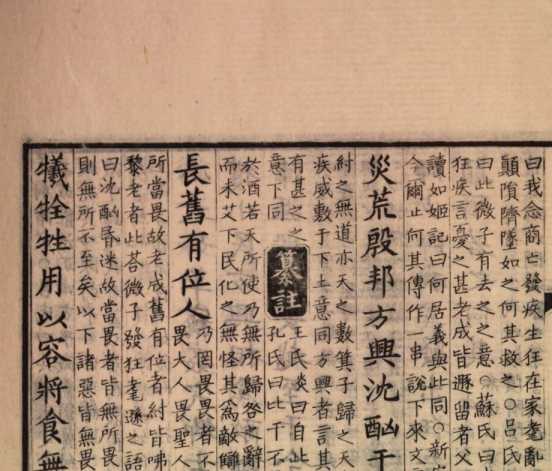 曰我念商亡發疾生狂在家耄亂
顛隕隮墜如之何其救之○呂氏
曰此微子有去之之意○蘇氏曰
狂疾言憂之甚老成皆遯留者父
讀如姬記曰何居義與此同○新安
今爾止何其傳作一串說下來文
災荒殷邦方興沈酗于
紂之無道亦天之數箕子歸之天
疾威敷于下土意同方興者言其
有甚之之
意下同
纂註
王氏炎曰自此
孔氏曰此干不
於酒若天所使乃無所歸咎之辭
而未艾下民化之無怪其為敵讎
長舊有位人
乃罔畏畏者不
畏大人畏聖人
所當畏故老成舊有位者紂皆咈
黎老者此荅微子發狂耄遜之語
曰沈酗昏迷故當畏者皆無所畏
則無所不至矣以下諸惡皆無畏
犧牷牲用以容將食無